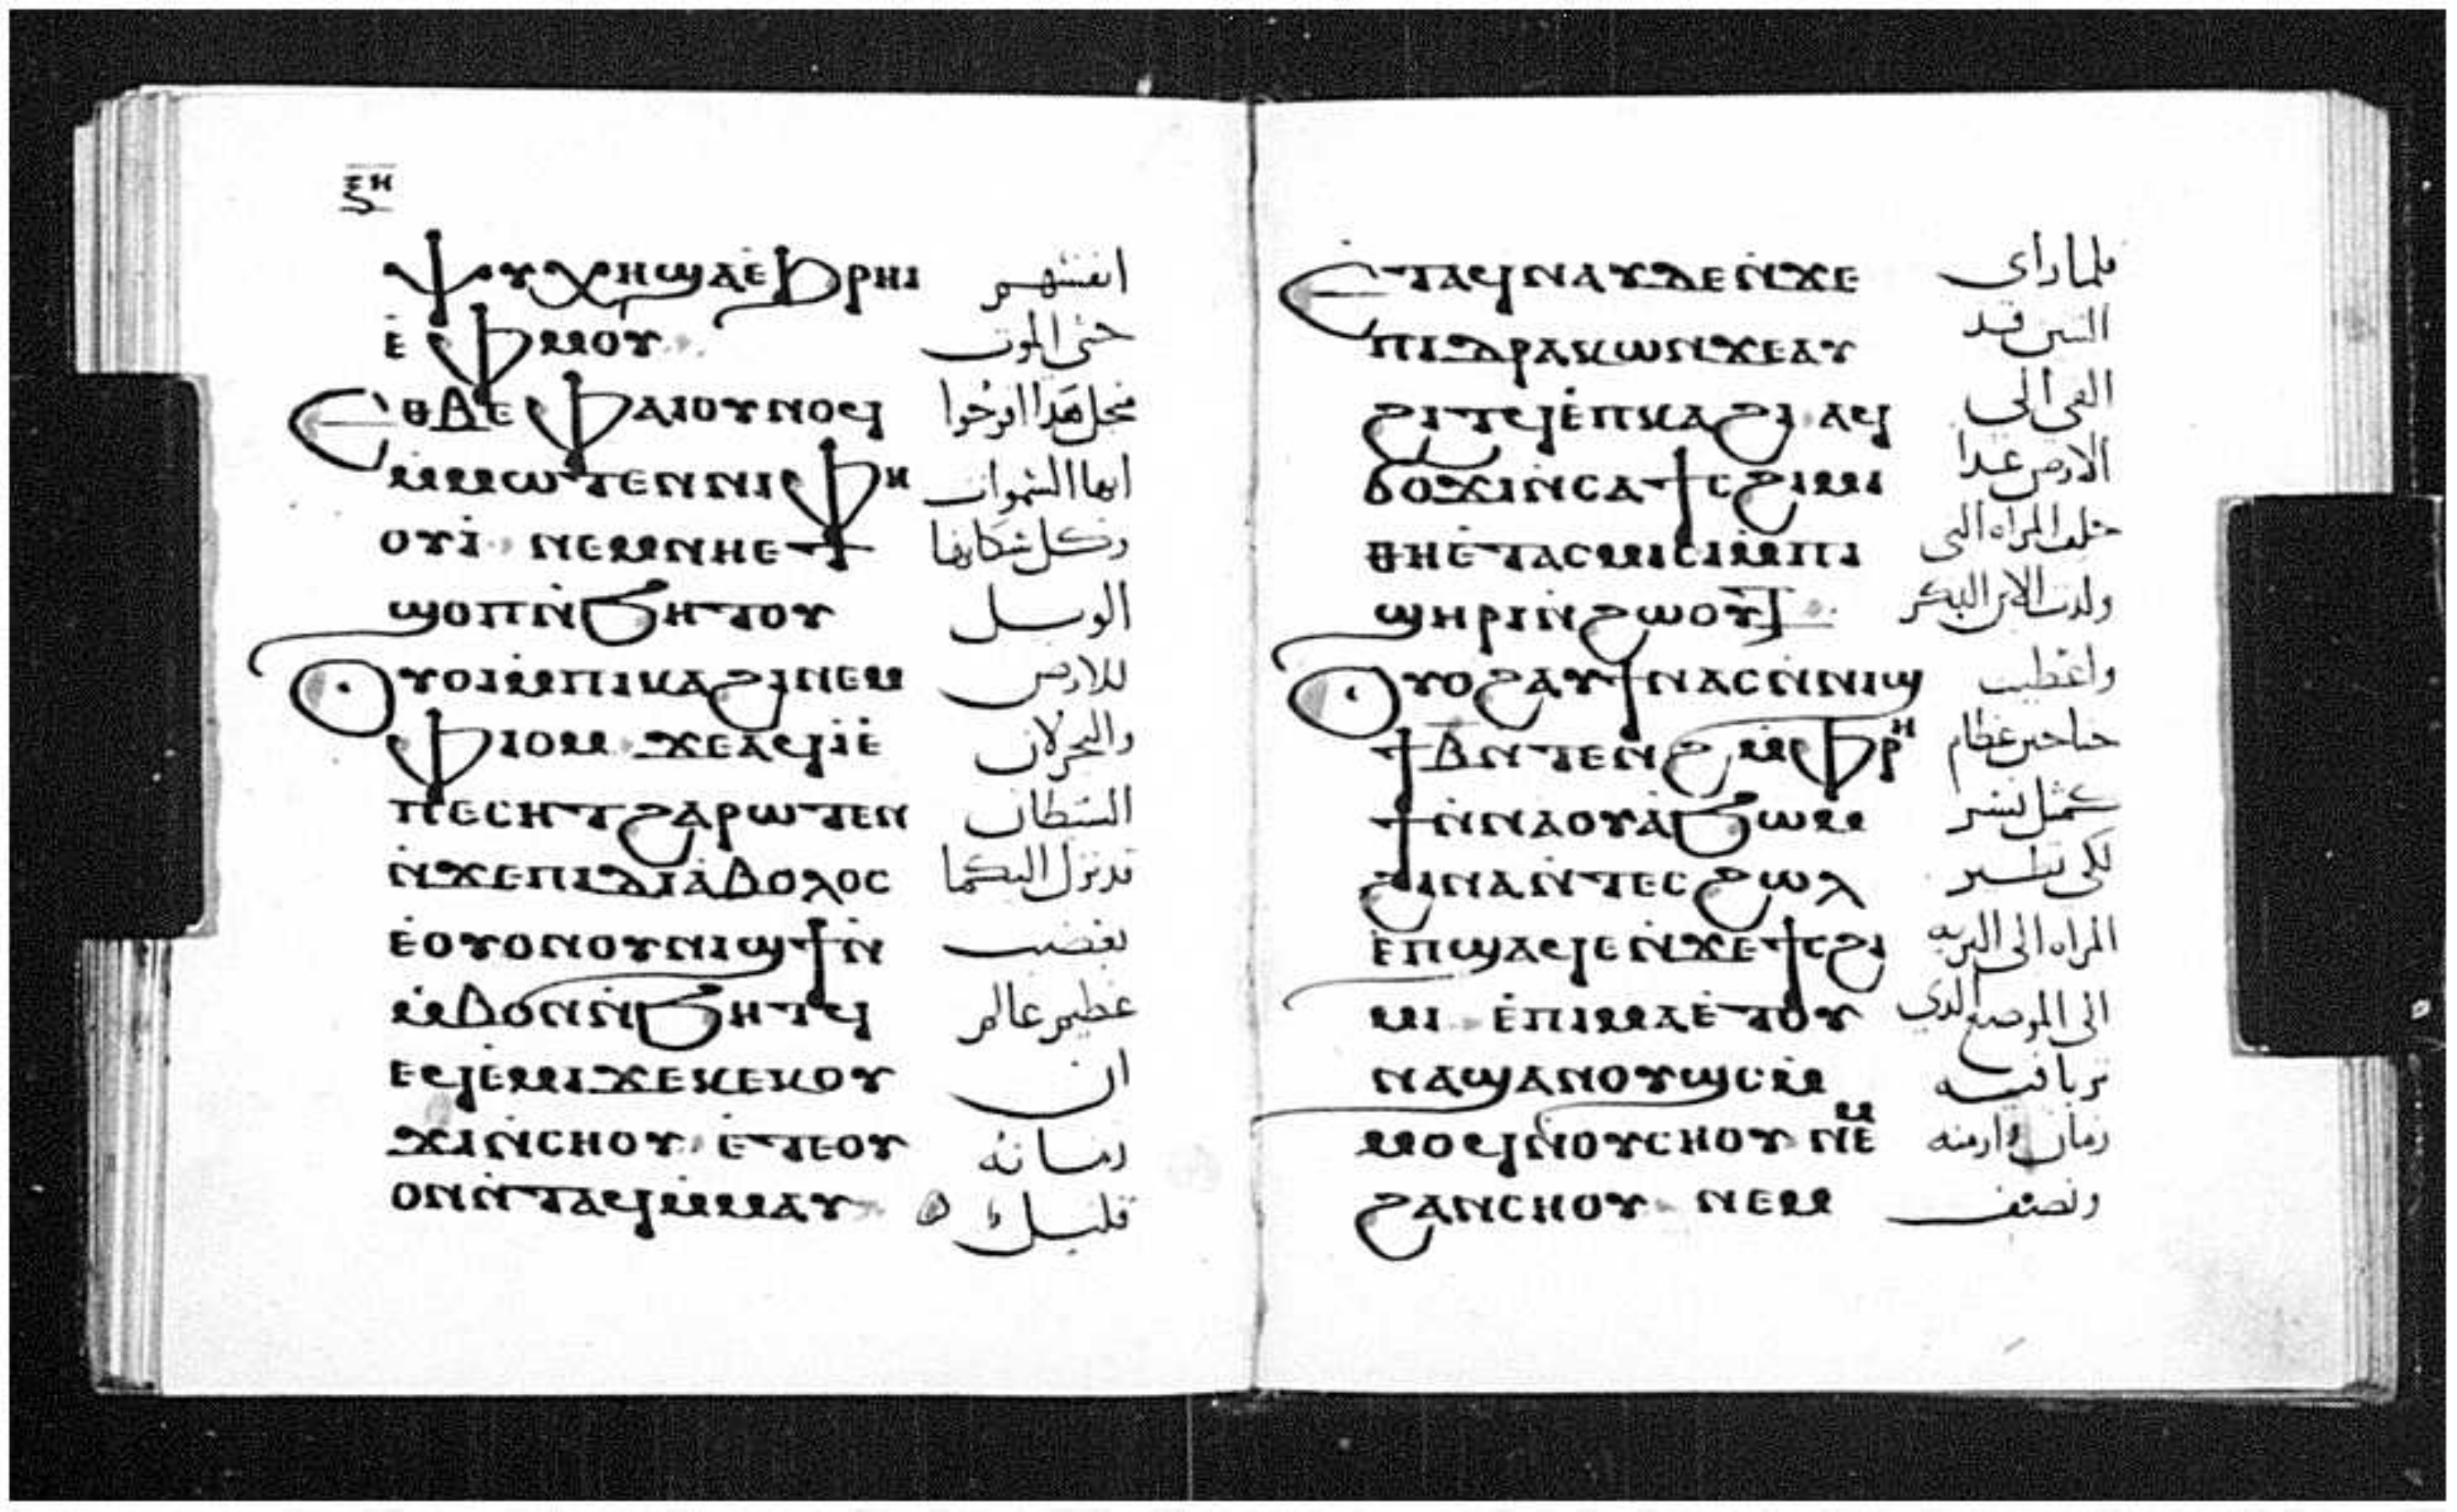 ⲝⲏ
ⲯⲩⲭⲏϣⲁⲉ̀ϧⲣⲏⲓ انفسهم
ⲉ̀ⲫⲙⲟⲩ حتى الموت
ⲉⲑⲃⲉⲫⲁⲓⲟⲩⲛⲟϥ مجل هدا افرحوا
ⲙ̀ⲙⲱⲧⲉⲛⲛⲓⲫⲏ ايها السموات
ⲟⲩⲓ̀ ⲛⲉⲙⲛⲏⲉⲧ وكل سكانها
ϣⲟⲡⲛ̀ϧⲏⲧⲟⲩ الويل
ⲟⲩⲟⲓⲙ̀ⲡⲓⲕⲁϩⲓⲛⲉⲙ للارض
ⲫⲓⲟⲙ ϫⲉⲁϥⲓ̀ⲉ̀ والبحر لان
ⲡⲉⲥⲏⲧϩⲁⲣⲱⲧⲉⲛ الشطان
ⲛ̀ϫⲉⲡⲓⲇⲓⲁ̀ⲃⲟⲗⲟⲥ قد نزل اليكما
ⲉ̀ⲟⲩⲟⲛⲟⲩⲛⲓϣϯⲛ̀ بغضب
ⲙ̀ⲃⲟⲛⲛ̀ϧⲏⲧϥ عظيم عالم
ⲉϥⲉⲙⲓϫⲉⲕⲉⲕⲟⲩ ان
ϫⲓⲛ̀ⲥⲏⲟⲩ ⲉ̀ⲧⲉⲟⲩ زمانه
ⲟⲛⲛ̀ⲧⲁϥⲙ̀ⲙⲁⲩ قليل
ⲉ̀ⲧⲁϥⲛⲁⲩⲇⲉⲛ̀ϫⲉ فلما راى
ⲡⲓⲇⲣⲁⲕⲱⲛϫⲉⲁⲩ التنين قد
ϩⲓⲧϥⲉ̀ⲡⲕⲁϩⲓ ⲁϥ القى الى
ϭⲟϫⲓⲛ̀ⲥⲁϯⲥϩⲓⲙⲓ الارض غدا
ⲑⲏⲉ̀ⲧⲁⲥⲙⲓⲥⲓⲙ̀ⲡⲓ خلف المراه التى
ϣⲏⲣⲓⲛ̀ϩⲱⲟⲩⲧ ولدت الابن البكر
ⲟⲩⲟϩⲁⲩϯⲛⲁⲥⲛ̀ⲛⲓϣ واعطيت
ϯⲃⲛ̀ⲧⲉⲛϩ ⲙ̀ⲫⲣⲏ جناحين عظام
ϯⲛ̀ⲛⲁⲟⲩⲁ̀ϧⲱⲙ كمثل نسر
ϩⲓⲛⲁⲛ̀ⲧⲉⲥϩⲱⲗ لكى تطير
ⲉ̀ⲡϣⲁϥⲉⲛ̀ϫⲉϯⲥϩⲓ المراه الى البريه
ⲙⲓ ⲉ̀ⲡⲓⲙⲁⲉ̀ⲧⲟⲩ الى الموضع الدى
ⲛⲁϣⲁⲛⲟⲩϣⲥⲙ̀ تربا فيه
ⲙⲟϥⲛ̀ⲟⲩⲥⲏⲟⲩ ⲛⲉⲙ زمان وازمنه
ϩⲁⲛⲥⲏⲟⲩ ⲛⲉⲙ ونصف